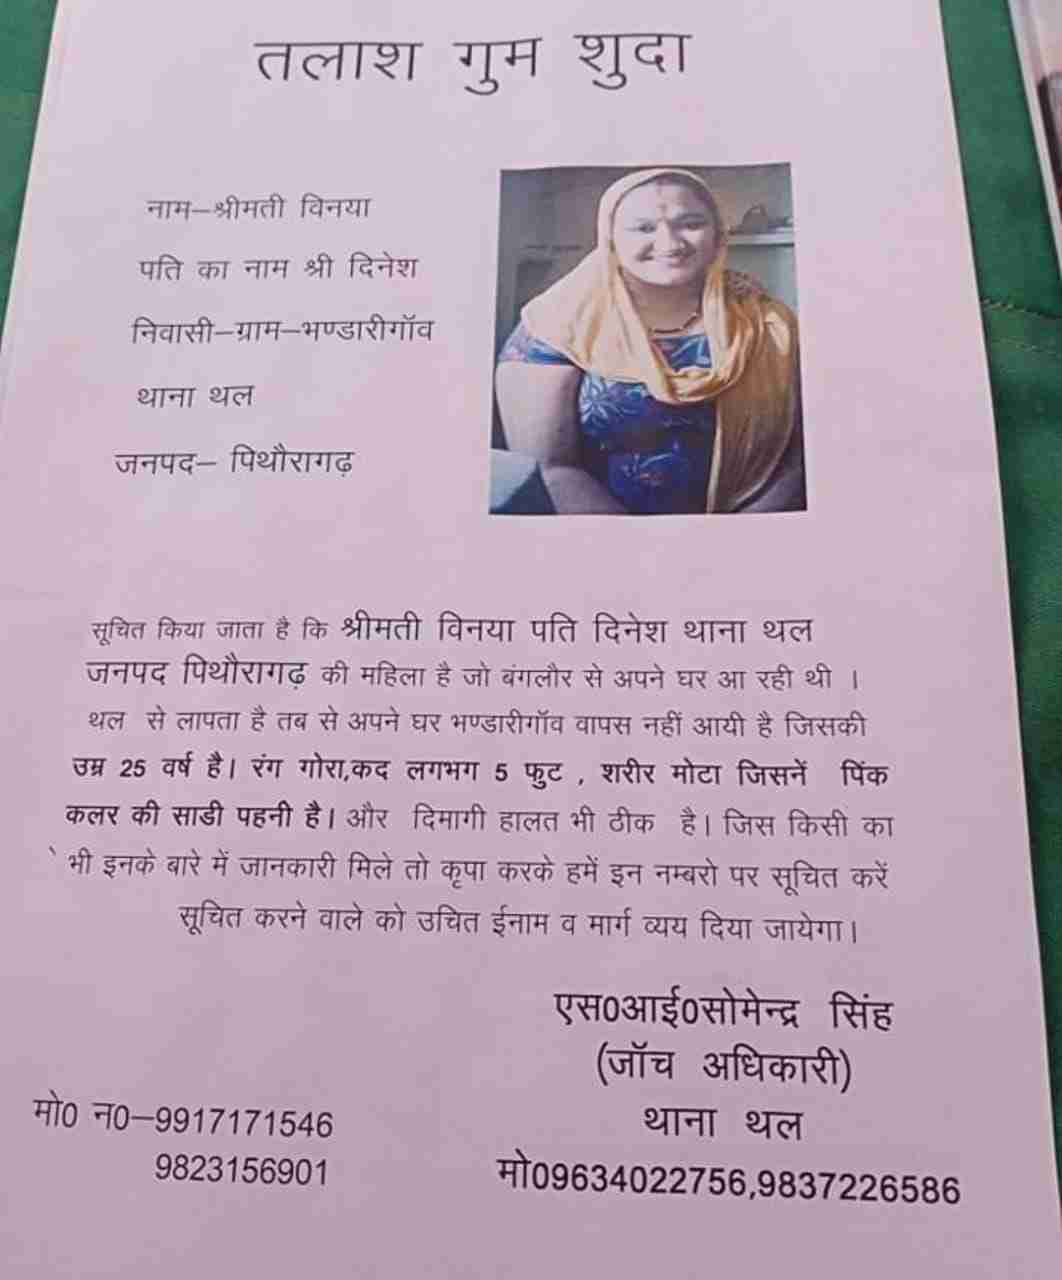 तलाश गुम शुदा
नाम–श्रीमती विनया
पति का नाम श्री दिनेश
निवासी–ग्राम–भण्डारीगॉव
थाना थल
जनपद– पिथौरागढ़
सूचित किया जाता है कि श्रीमती विनया पति दिनेश थाना थल
जनपद पिथौरागढ़ की महिला है जो बंगलौर से अपने घर आ रही थी ।
थल से लापता है तब से अपने घर भण्डारीगॉव वापस नहीं आयी है जिसकी
उम्र 25 वर्ष है। रंग गोरा,कद लगभग 5 फुट , शरीर मोटा जिसनें पिंक
कलर की साडी पहनी है। और दिमागी हालत भी ठीक है। जिस किसी का
े भी इनके बारे में जानकारी मिले तो कृपा करके हमें इन नम्बरो पर सूचित करें
सूचित करने वाले को उचित ईनाम व मार्ग व्यय दिया जायेगा।
एस0आई0सोमेन्द्र सिंह
(जॉच अधिकारी)
थाना थल
मो09634022756,9837226586
मो0 न0–9917171546
9823156901